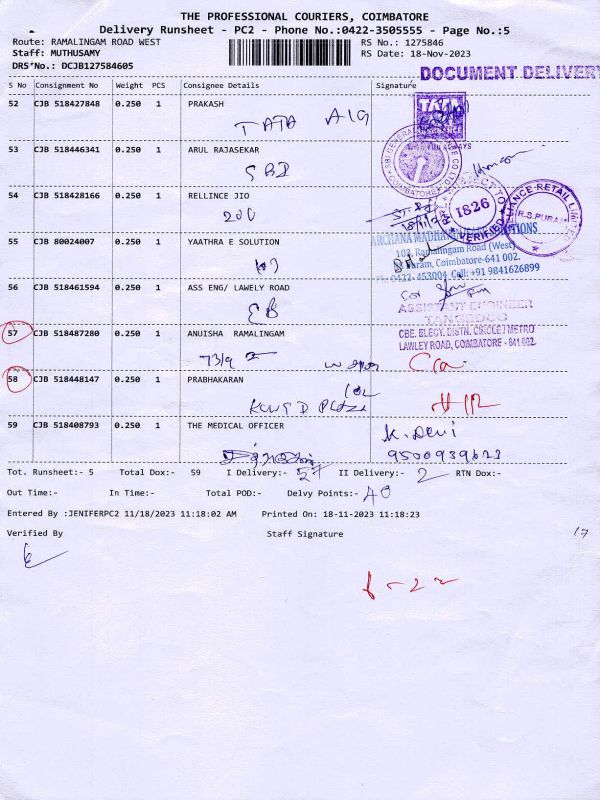 THE PROFESSIONAL COURIERS, COIMBATORE
Delivery Runsheet - PC2 - Phone No.:0422-3505555 - Page No.:5
Route: RAMALINGAM ROAD WEST
RS No.: 1275846
Staff: MUTHUSAMY
RS Date: 18-Nov-2023
DRS No.: DCJB127584605
DOCUMENT DELIVERY
S No Consignment No Weight PCS Consignee Details Signature
52 CJB 518427848 0.250 1 PRAKASH
TATA AIG
TATA
INSURANCE
53 CJB 518446341 0.250 1 ARUL RAJASEKAR
SBI
SBI GENERAL
COIMBATORE
54 CJB 518428166 0.250 1 RELLINCE JIO
200
18/11/23
1826
VERIFIED
RELIANCE RETAIL LIMITED
R.S.PURAM
55 CJB 80024007 0.250 1 YAATHRA E SOLUTION
103
103, Ramalingam Road (West)
Coimbatore-641 002.
Ph: 0422-453004 Cell: +91 9841626899
56 CJB 518461594 0.250 1 ASS ENG/ LAWELY ROAD
EB
ASSISTANT ENGINEER
TANGEDCO
CBE. ELECY. DISTN. CIRCLE / METRO
LAWLEY ROAD, COIMBATORE - 641 002.
57 CJB 518487280 0.250 1 ANUISHA RAMALINGAM
73/9
58 CJB 518448147 0.250 1 PRABHAKARAN
102
PLAZA
59 CJB 518408793 0.250 1 THE MEDICAL OFFICER
K. Devi
9500939623
Tot. Runsheet:- 5 Total Dox:- 59 I Delivery:- 57 II Delivery:- 2 RTN Dox:-
Out Time:- In Time:- Total POD:- Delvy Points:- 40
Entered By :JENIFERPC2 11/18/2023 11:18:02 AM Printed On: 18-11-2023 11:18:23
Verified By Staff Signature
17